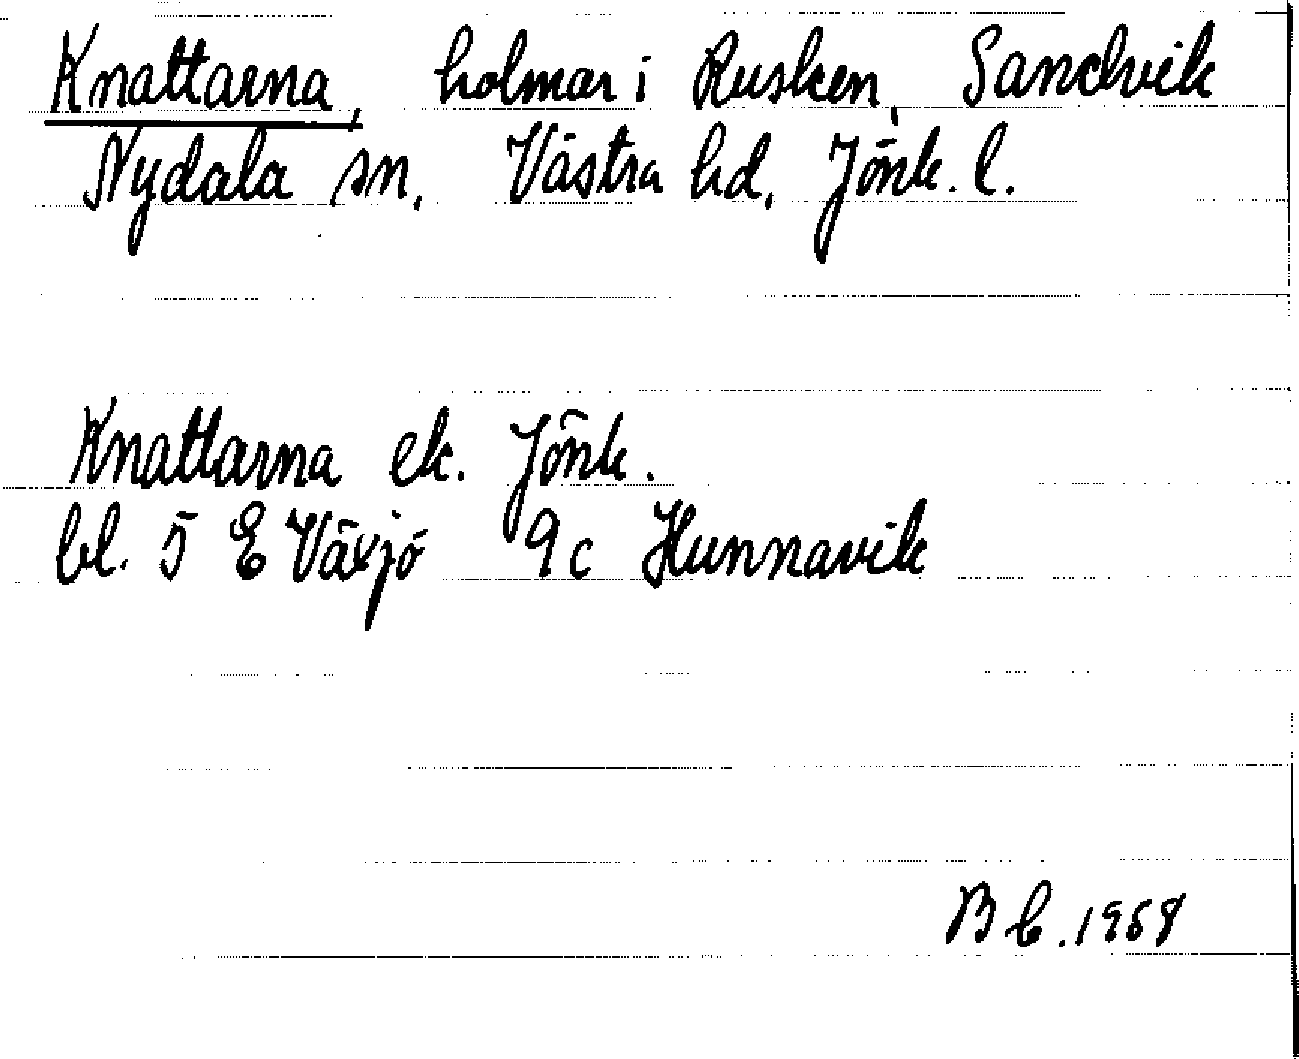 Knattarna, holmar i Rusken, Sandvik
Nydala sn, Västra hd, Jönk. l.
Knattarna ek. Jönk.
bl. 5 E Växjö 9c Hunnavik
B C. 1968